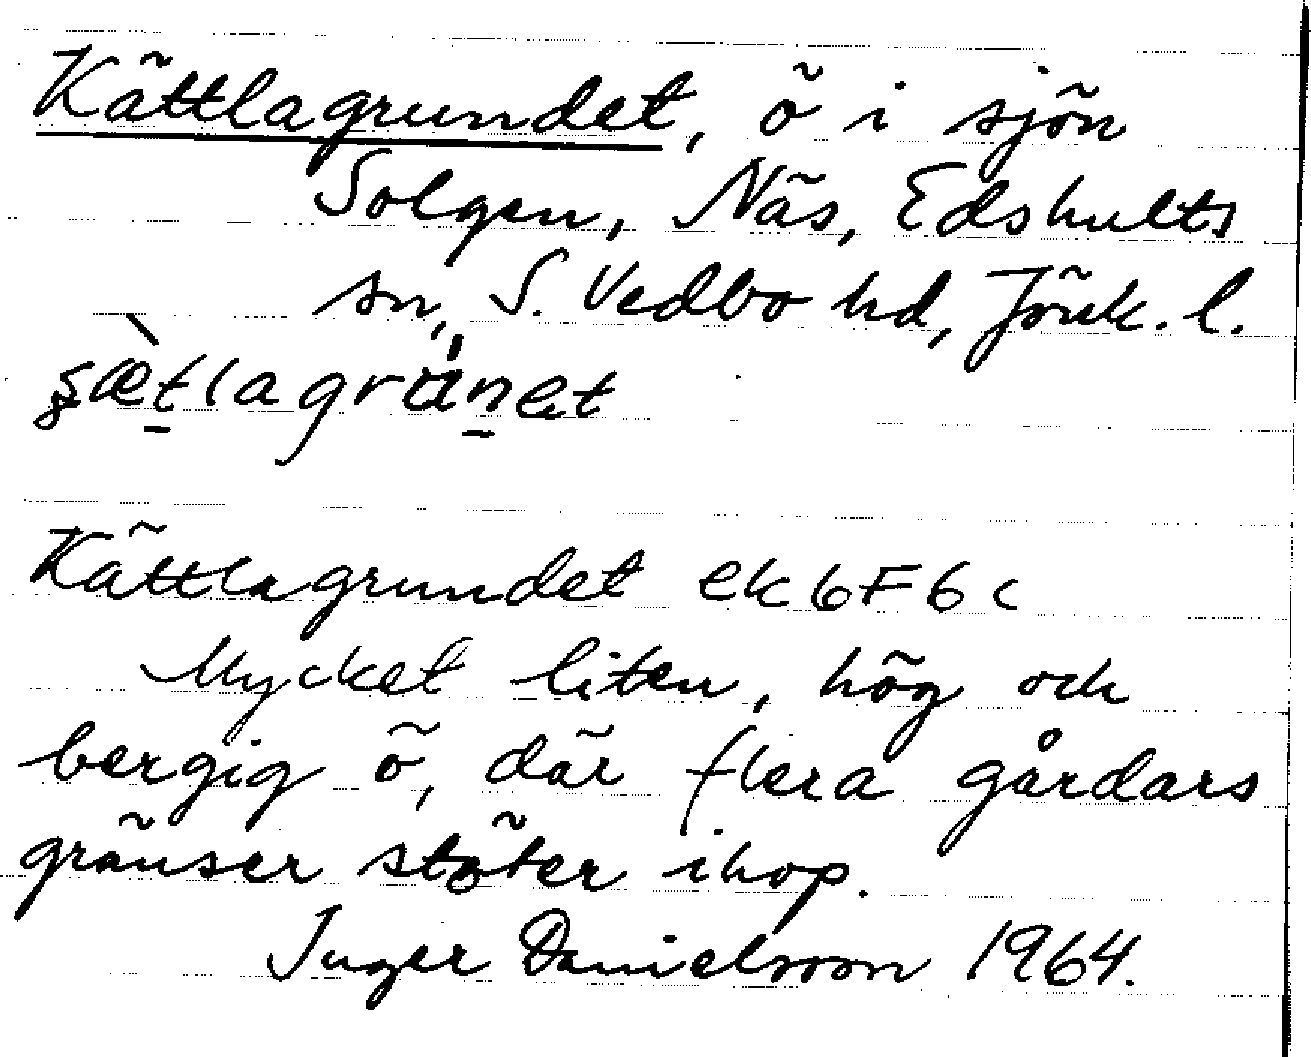 Kättlagrundet, ö i sjön
Solgen, Näs, Edshults
sn, S. Vedbo hd, Jönk. l.
Kättlagrundet ek 6F6c
Mycket liten, hög och
bergig ö, där flera gårdars
gränser stöter ihop.
Inger Danielsson 1964.